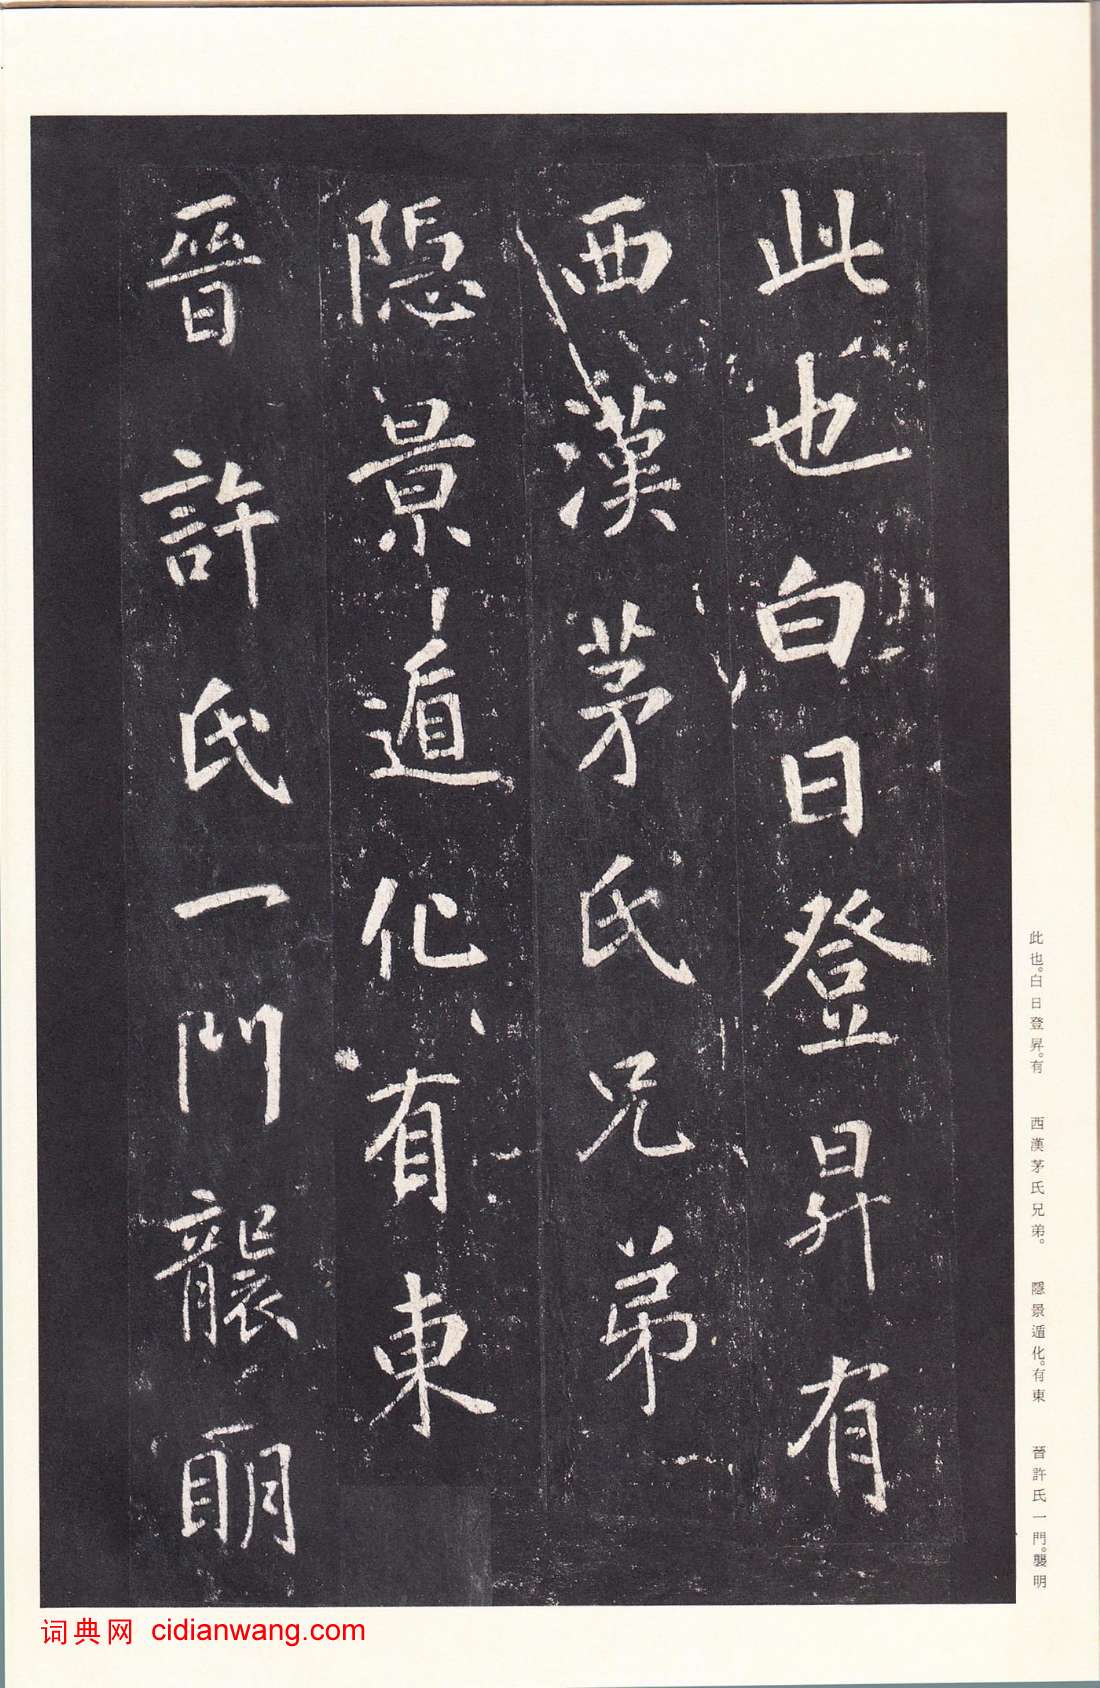 此也白日登昇有
西漢茅氏兄弟
隱景遁化有東
晉許氏一門襲明
此也。白日登昇。有　西漢茅氏兄弟。　隱景遁化。有東　晉許氏一門。襲明
词典网 cidianwang.com